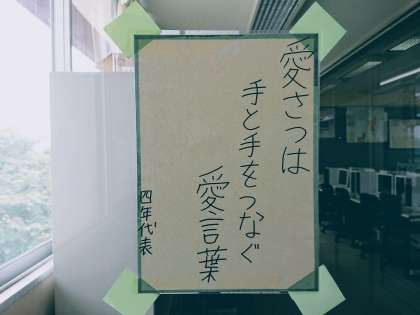 愛さつは
手と手をつなぐ
愛言葉
四年代表